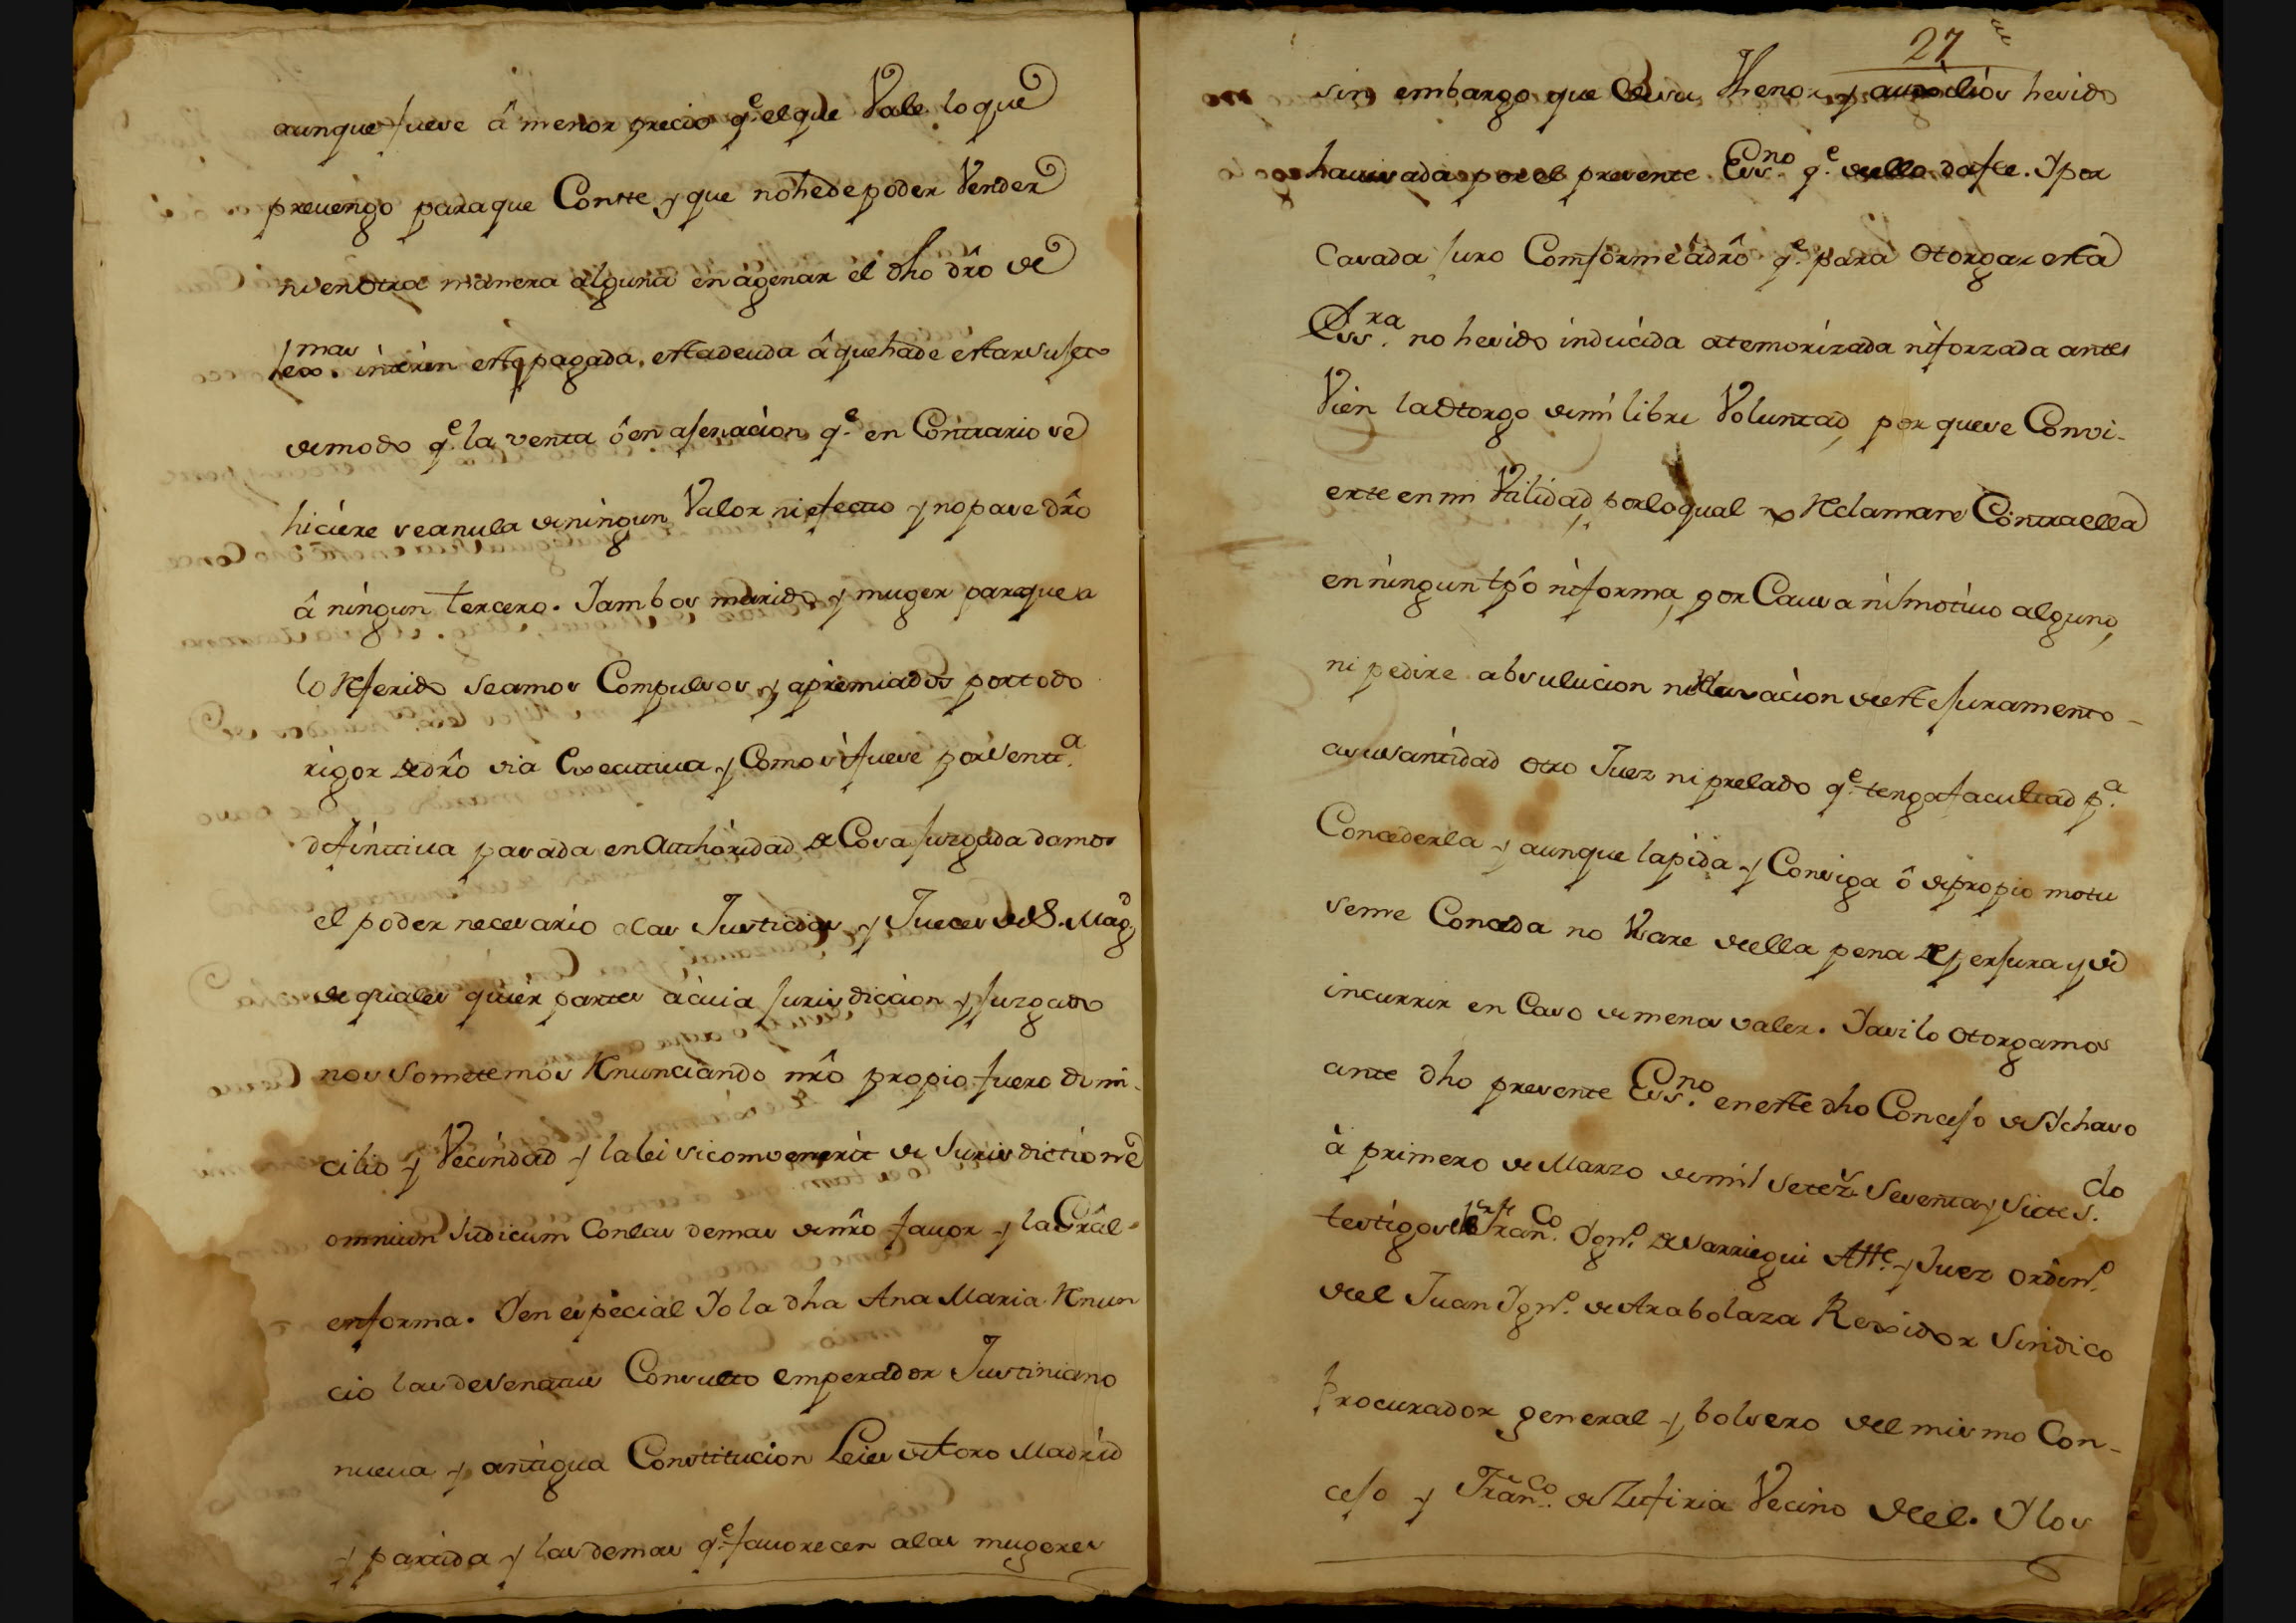 aunque fuese â menor precio q.e el que Vale lo que
preuengo para que Conste y que no he de poder Vender
ni en otra manera alguna en agenar el dho dro̅ de
interin esta pagada, esta deuda â que ha de estar sujeto
de modo q.e la venta ô en ajenacion q.e en Contrario se
hiciere sea nula de ningun Valor ni efecto y no pase dro̅
â ningun tercero. Y ambos marido y muger para que a
lo Referido seamos Compulsos y apremiados por todo
rigor de dro̅ via executiua y Como si fuese por Sent.a
difinitiua pasada en Authoridad de Cosa juzgada damos
el poder necesario a las Justicias y Jueces de S. Mag.d
de quales quier partes â cuia jurisdiccion y juzgado
nos sometemos Renunciando nro̅ propio fuero domi-
cilio y Vecindad y la lei si combenerit de Jurisdictione
omniun Judicum Con las demas de nro̅ fauor y la Gra̅l
en forma. Y en especial Yo la dha Ana Maria Renun
cio las de Senatus Consulto emperador Justiniano
nueua y antigua Constitucion Leies de toro Madrid
y partida y las demas q.e fauorecen a las mugeres
27
sin embargo que de su Thenor y auxilios he sido
hauisada por el presente Ess.no q.e de ello da fee. Y por
Casada juro Comforme â dro̅ q.e para otorgar esta
Ess.ra no he sido inducida atemorizada ni forzada antes
Vien la Otorgo de mi libre Voluntad, por que se Convi-
erte en mi Vtilidad, por lo qual no Reclamare Contra ella
en ningun tpô ni forma, por Causa ni motiuo alguno,
ni pedire absulucion ni Relaxacion de este juramento-
a su santidad otro Juez ni prelado q.e tenga facultad p.a
Concederla y aunque la pida y Consiga ô de propio motu
seme Conceda no Vsare de ella pena de perjura y de
incurrir en Caso de menos valer. Y asi lo otorgamos
ante dho presente Ess.no en este dho Concejo de Ychaso
à primero de Marzo de mil setez.s Setenta y Siete S.do
testigos Fran.co Ygn.o de Sarriegui Alle. y Juez ordin.o
de el Juan Ygn.o de Arabolaza Rexidor Sindico
Procurador general y bolsero del mismo Con-
cejo y Fran.co de Zufiria Vecino de el. Y los